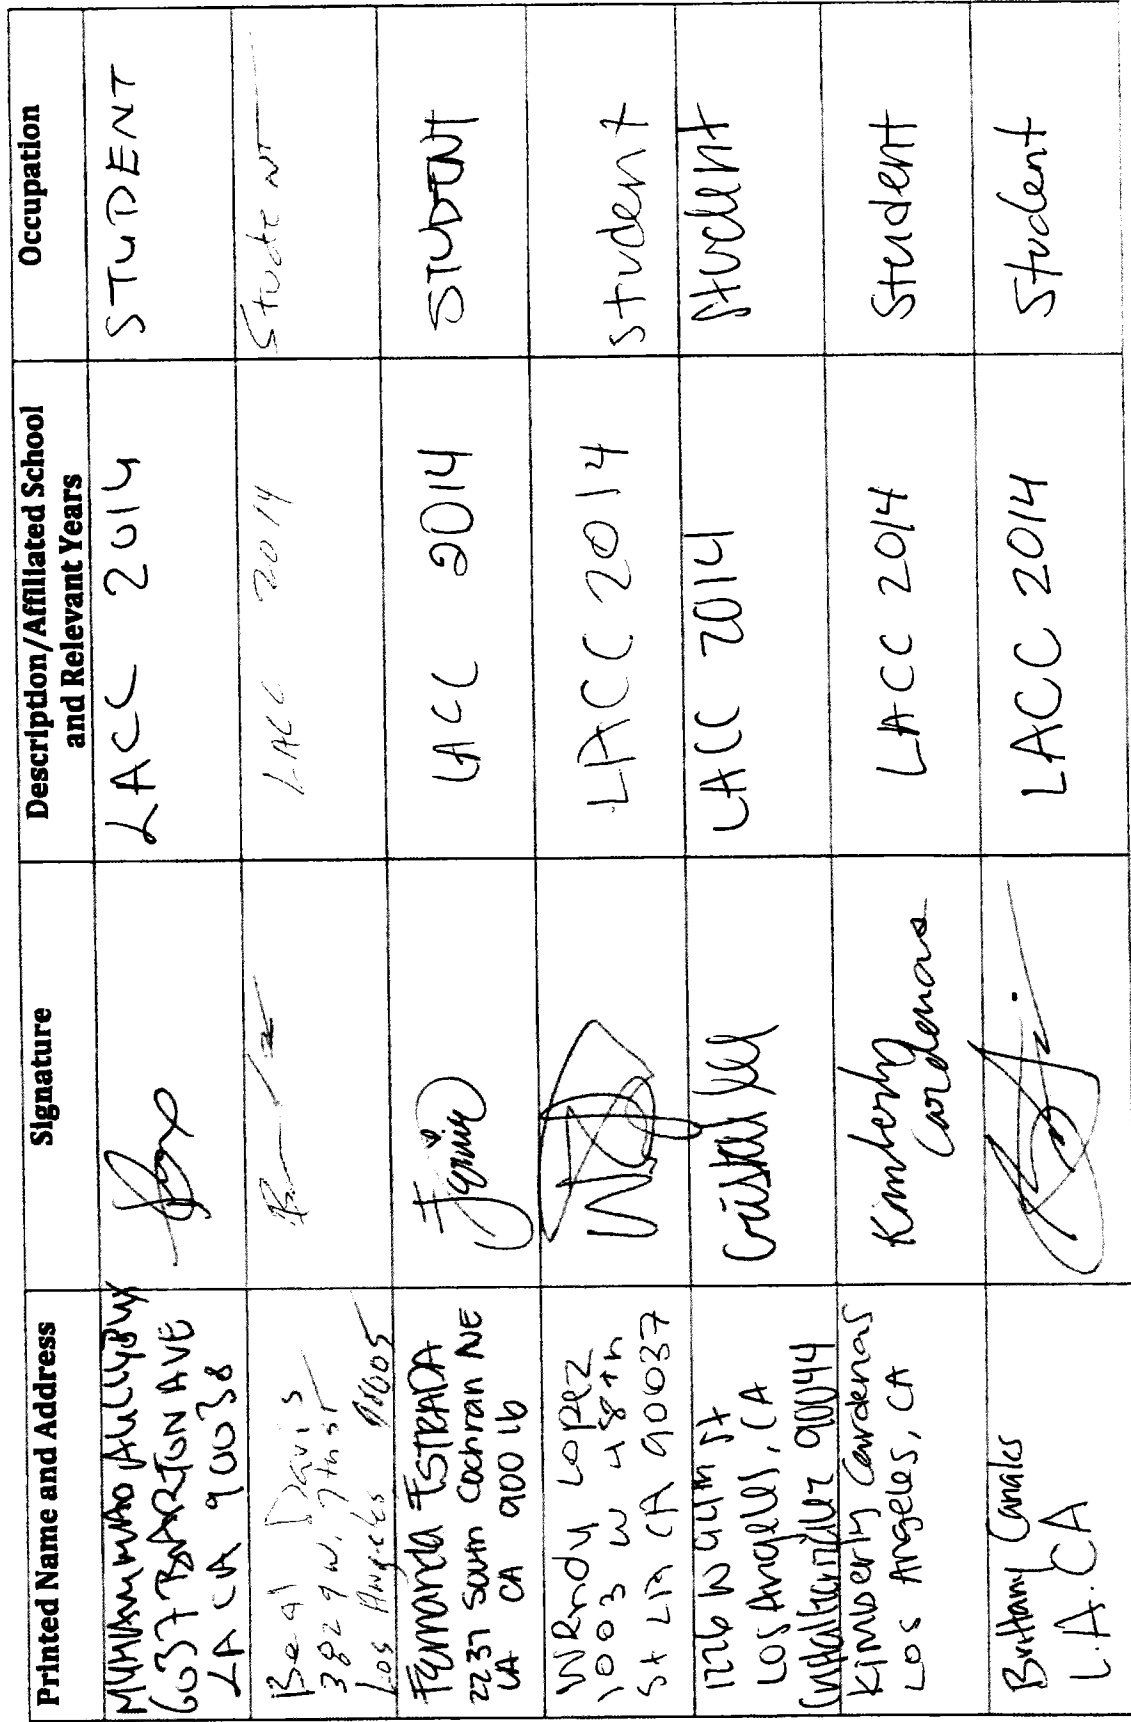 Printed Name and Address
Signature
Description/Affiliated School
and Relevant Years
Occupation
6037 BARTON AVE
LA CA 90038
LACC 2014
STUDENT
Beal Davis
3829 W. 7th st
Los Angeles 90005
LACC 2014
Student
Fernanda ESTRADA
2237 South Cochran
LA CA 90016
LACC 2014
STUDENT
Wendy Lopez
1003 W 48th
St LA CA 90037
LACC 2014
Student
1226 W 94th St
Los Angeles, CA
90044
LACC 2014
Student
Kimberly Cardenas
Los Angeles, CA
Kimberly
Cardenas
LACC 2014
Student
Brittany Canales
L.A. CA
LACC 2014
Student